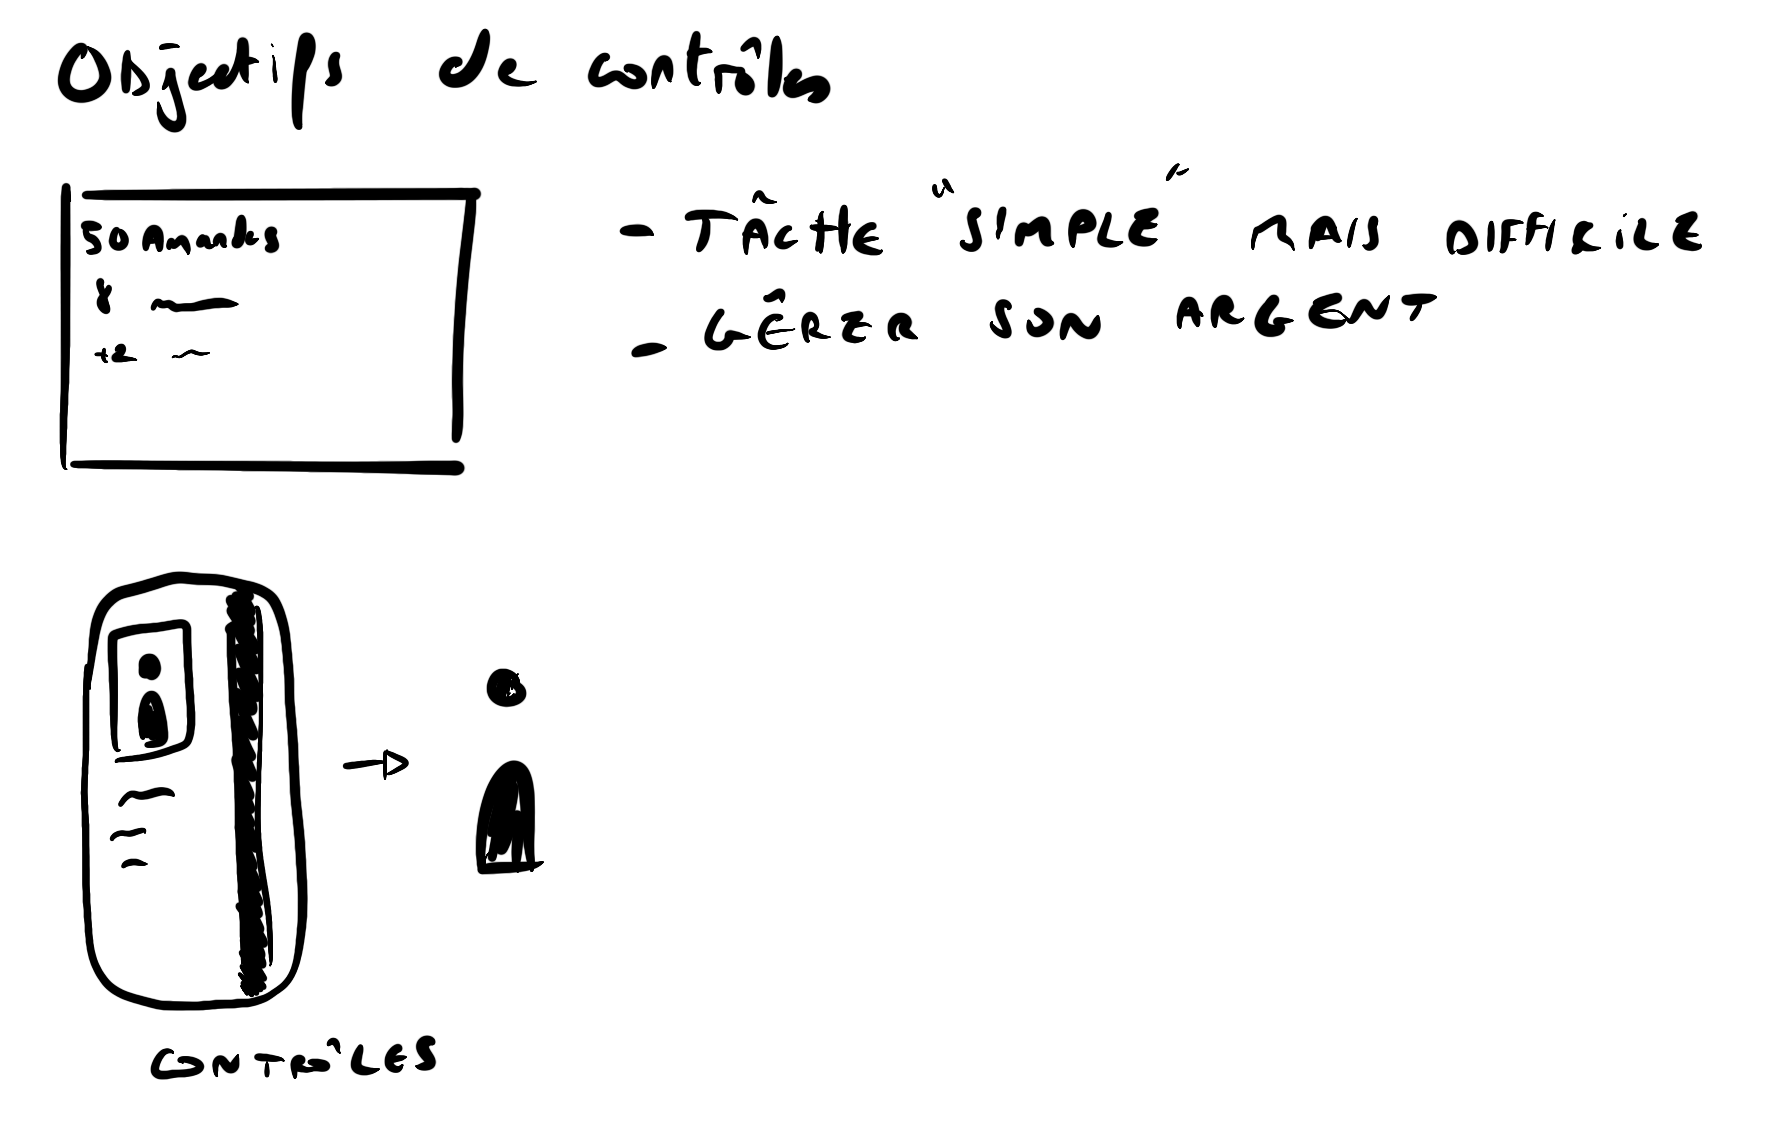 Objectifs de contrôles
50 Amandes
8
+2
- TÂCHE "SIMPLE" MAIS DIFFICILE
- GÊRER SON ARGENT
CONTRÔLES